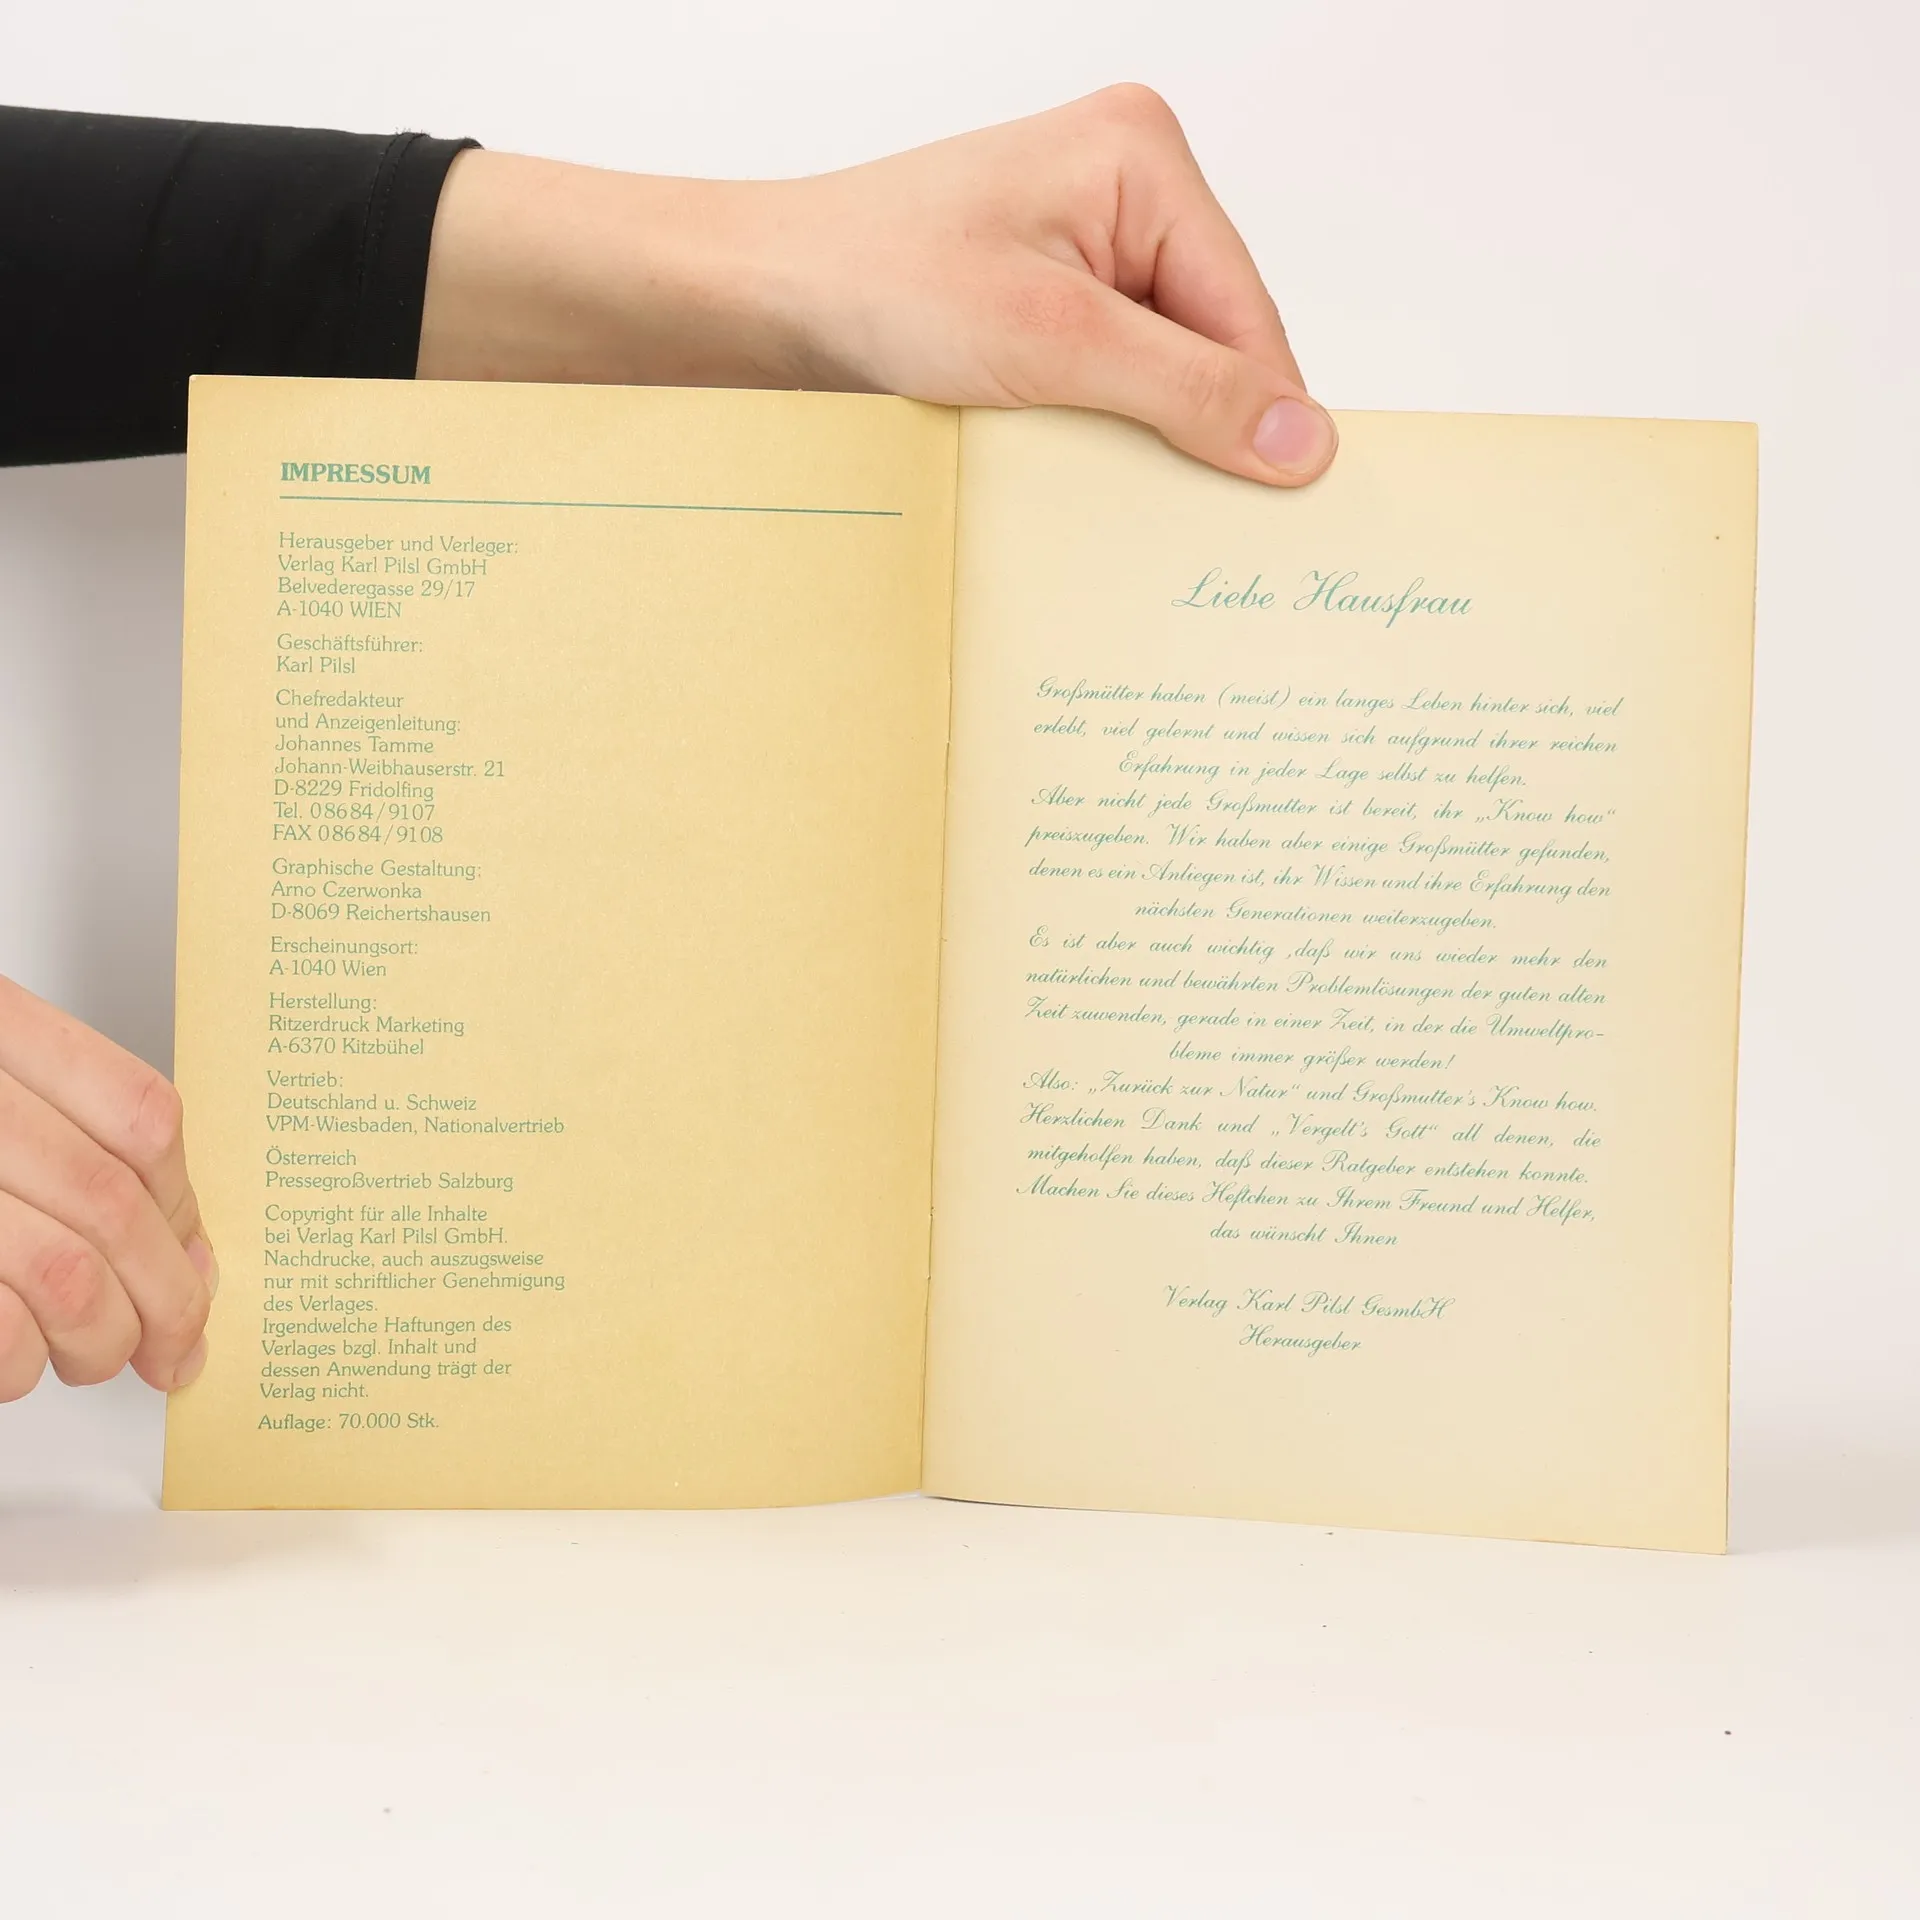 IMPRESSUM
Herausgeber und Verleger:
Verlag Karl Pilsl GmbH
Belvederegasse 29/17
A-1040 WIEN
Geschäftsführer:
Karl Pilsl
Chefredakteur
und Anzeigenleitung:
Johannes Tamme
Johann-Weibhauserstr. 21
D-8229 Fridolfing
Tel. 08684/9107
FAX 08684/9108
Graphische Gestaltung:
Arno Czerwonka
D-8069 Reichertshausen
Erscheinungsort:
A-1040 Wien
Herstellung:
Ritzerdruck Marketing
A-6370 Kitzbühel
Vertrieb:
Deutschland u. Schweiz
VPM-Wiesbaden, Nationalvertrieb
Österreich
Pressegroßvertrieb Salzburg
Copyright für alle Inhalte
bei Verlag Karl Pilsl GmbH.
Nachdrucke, auch auszugsweise
nur mit schriftlicher Genehmigung
des Verlages.
Irgendwelche Haftungen des
Verlages bzgl. Inhalt und
dessen Anwendung trägt der
Verlag nicht.
Auflage: 70.000 Stk.
Liebe Hausfrau
Großmütter haben (meist) ein langes Leben hinter sich, viel
erlebt, viel gelernt und wissen sich aufgrund ihrer reichen
Erfahrung in jeder Lage selbst zu helfen.
Aber nicht jede Großmutter ist bereit, ihr „Know how“
preiszugeben. Wir haben aber einige Großmütter gefunden,
denen es ein Anliegen ist, ihr Wissen und ihre Erfahrung den
nächsten Generationen weiterzugeben.
Es ist aber auch wichtig ,daß wir uns wieder mehr den
natürlichen und bewährten Problemlösungen der guten alten
Zeit zuwenden, gerade in einer Zeit, in der die Umweltpro-
bleme immer größer werden!
Also: „Zurück zur Natur“ und Großmutter's Know how.
Herzlichen Dank und „Vergelt's Gott“ all denen, die
mitgeholfen haben, daß dieser Ratgeber entstehen konnte.
Machen Sie dieses Heftchen zu Ihrem Freund und Helfer,
das wünscht Ihnen
Verlag Karl Pilsl GesmbH
Herausgeber